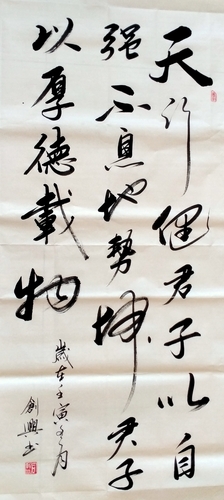 天行健君子以自
强不息地势坤君子
以厚德載物
歲在壬寅冬月
創興书